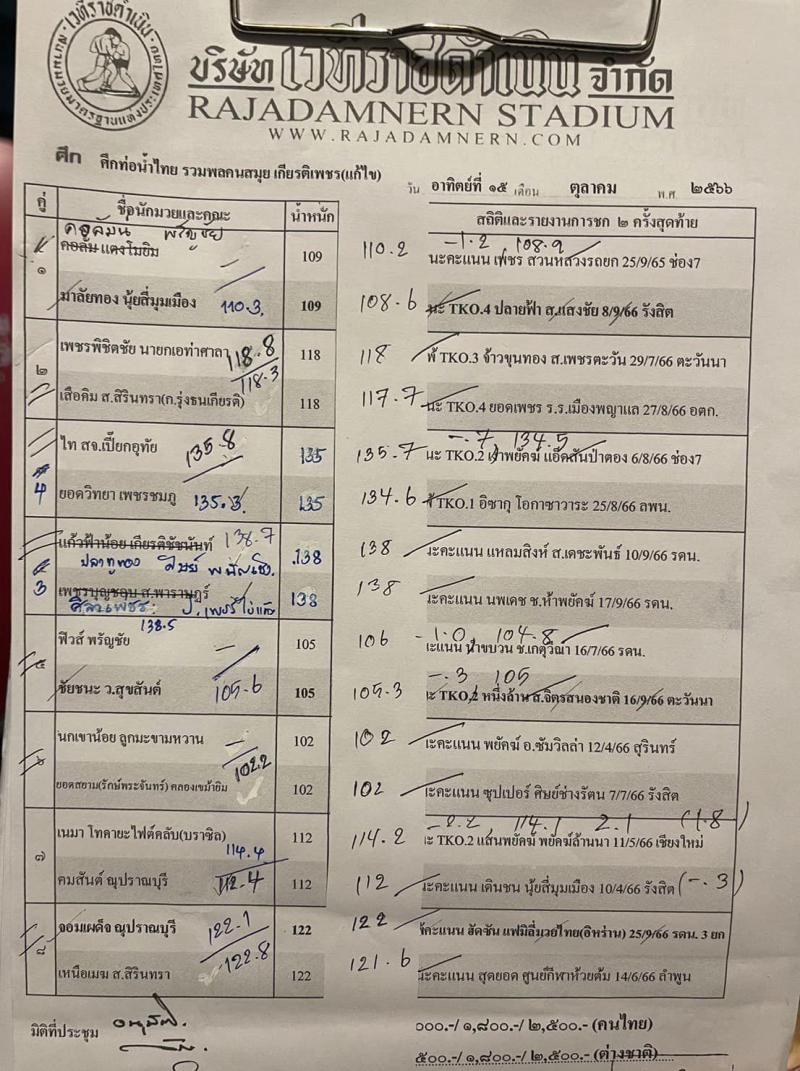 เวทีราชดำเนิน
บริษัท เวทีราชดำเนิน จำกัด
RAJADAMNERN STADIUM
WWW.RAJADAMNERN.COM
ศึก ศึกท่อน้ำไทย รวมพลคนสมุย เกียรติเพชร(แก้ไข)
วัน อาทิตย์ที่ ๑๕ เดือน ตุลาคม พ.ศ ๒๕๖๖
คู่ ชื่อนักมวยและคณะ น้ำหนัก สถิติและรายงานการชก ๒ ครั้งสุดท้าย
พรัญชัย -1.2 108.9
๑ แดงโมอิม 109 110.2 นะคะแนน เพชร สวนหลวงรถยก 25/9/65 ช่อง7
มาลัยทอง นุ้ยสี่มุมเมือง 110.3 109 108.6 นะ TKO.4 ปลายฟ้า ส.แสงชัย 8/9/66 รังสิต
๒ เพชรพิชิตชัย นายกเอท่าศาลา 118.8 118 118 พ้ TKO.3 จ้าวขุนทอง ส.เพชรตะวัน 29/7/66 ตะวันนา
118.3
เสือคิม ส.สิรินทรา(ก.รุ่งธนเกียรติ) 118 117.7 นะ TKO.4 ยอดเพชร ร.ร.เมืองพญาแล 27/8/66 อตก.
-.7 134.5
ไท สจ.เปี๊ยกอุทัย 135.8 135 135.7 นะ TKO.2 เผ่าพยัคฆ์ แอ๊ดสันป่าตอง 6/8/66 ช่อง7
4 ยอดวิทยา เพชรชมภู 135.3 135 134.6 TKO.1 อิซากุ โอกาซาวาระ 25/8/66 ลพน.
แก้วฟ้าน้อย เกียรติชัชนันท์ 138.7 138 138 นะคะแนน แหลมสิงห์ ส.เดชะพันธ์ 10/9/66 รดน.
ปลาทูทอง ศิษย์
3 เพชรบุญชอบ ส.พาราษฎร์ 138 138 นะคะแนน นพเดช ช.ห้าพยัคฆ์ 17/9/66 รดน.
138.5
-1.0 104.8
๕ ฟิวส์ พรัญชัย 105 106 นะคะแนน นำขบวน ช.เกตุวีณา 16/7/66 รดน.
-.3 105
ชัยชนะ ว.สุขสันต์ 105.6 105 105.3 นะ TKO.2 หนึ่งล้าน ส.จิตรสนองชาติ 16/9/66 ตะวันนา
๖ นกเขาน้อย ลูกมะขามหวาน 102 102 นะคะแนน พยัคฆ์ อ.ซัมวิลล่า 12/4/66 สุรินทร์
102.2
ยอดสยาม(รักษ์พระจันทร์) คลองเขม้ายิม 102 102 นะคะแนน ซุปเปอร์ ศิษย์ช่างรัตน 7/7/66 รังสิต
-2.2 114.1 2.1 (1.8)
๗ เนมา โทคายะไฟต์คลับ(บราซิล) 112 114.2 นะ TKO.2 แสนพยัคฆ์ พยัคฆ์ล้านนา 11/5/66 เชียงใหม่
114.4
คมสันต์ ณุปราณบุรี 112.4 112 112 นะคะแนน เดินชน นุ้ยสี่มุมเมือง 10/4/66 รังสิต (-.3)
๘ จอมเผด็จ ณุปราณบุรี 122.1 122 122 คะแนน ฮัดซัน แฟมิลี่มวยไทย(อิหร่าน) 25/9/66 รดน. 3 ยก
เหนือเมฆ ส.สิรินทรา 122.8 122 121.6 นะคะแนน สุดยอด ศูนย์กีฬาห้วยต้ม 14/6/66 ลำพูน
มิติที่ประชุม ๐๐๐.-/ ๑,๘๐๐.-/ ๒,๕๐๐.- (คนไทย)
๕๐๐.-/ ๑,๘๐๐.-/ ๒,๕๐๐.- (ต่างชาติ)